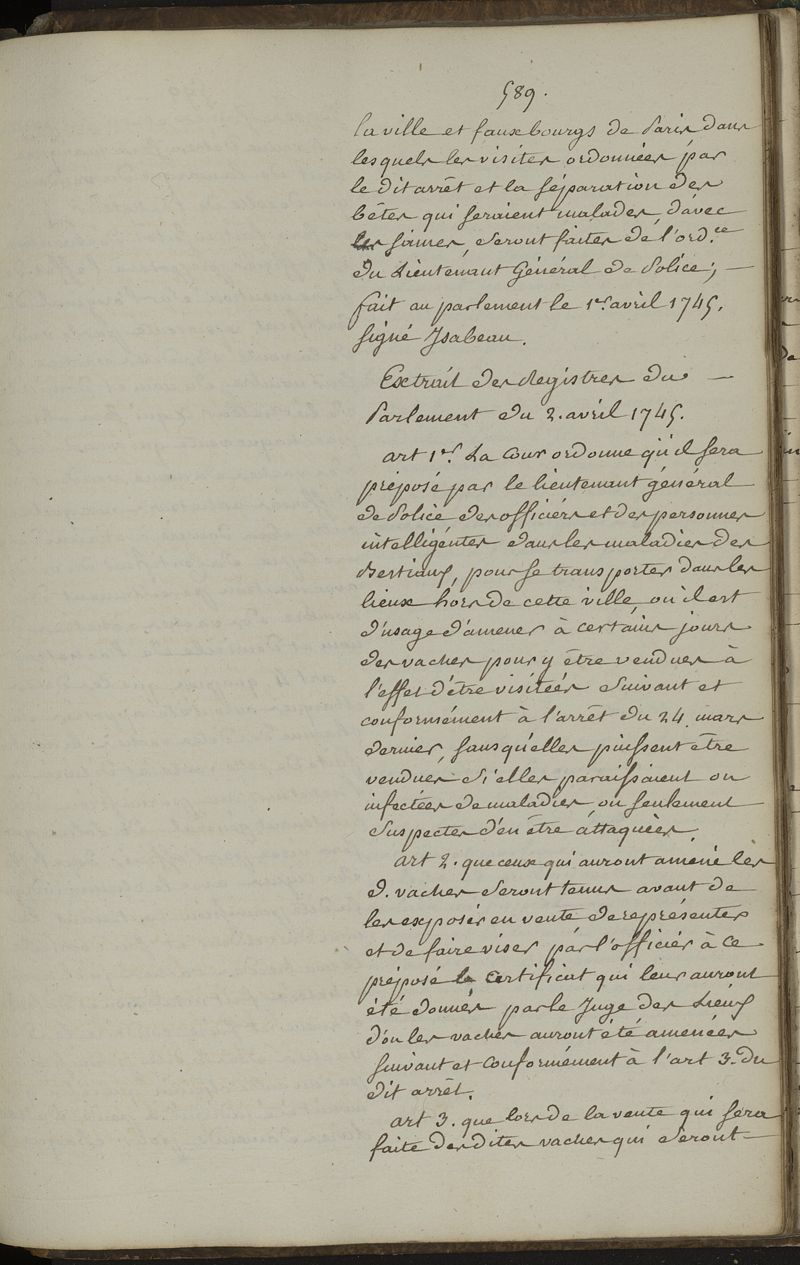 589.
la ville et fauxbourgs de Paris dans
lesquels les visites ordonnées par
le dit arrêt et la séparation des
bêtes qui seraient malades, d'avec
les saines, seront faites de l'ord.ce
du Lieutenant Général de Police; —
fait au parlement le 1er avril 1745.
signé Ysabeau.
Extrait des Registres du —
Parlement du 2. avril 1745.
art 1er. La Cour ordonne qu'il sera
préposé par le lieutenant général
de Police des officiers et des personnes
intelligéntes dans les maladies des
Bestiaux, pour se transporter dans les
lieux hors de cette ville, où il est
d'usage d'amener à certains jours
des vaches pour y être vendues à
l'effet d'être visitées suivant et
conformément à l'arrêt du 24. mars
dernier, sans qu'elles puissent être
vendues si elles paraissaient ou
infectées de maladies, ou seulement
suspectes d'en être attaquées.
art 2. que ceux qui auront amené lès
d. vaches seront tenus avant de
les exposer en vente de représenter
et de faire viser par l'officier à ce
préposé le certificat qui leur auront
été donnés par le Juge des Lieux
d'où les vaches auront été amenées
suivant et conformément à l'art 3. du
dit arrêt.
art 3. que lors de la vente qui sera
faite des dites vaches qui seront —